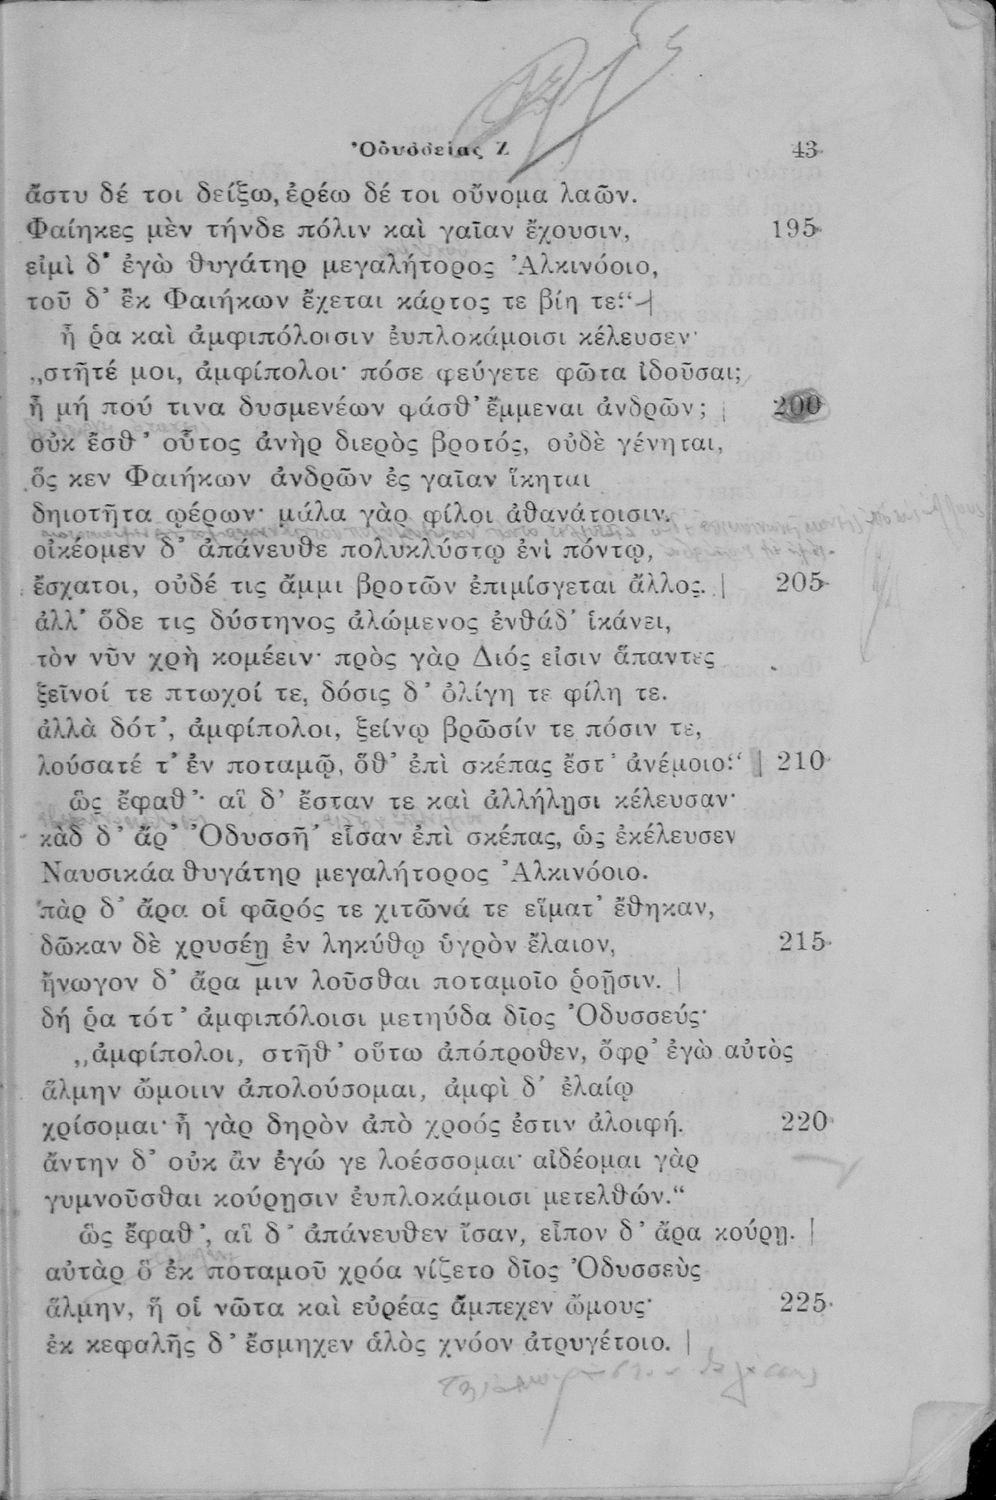 Ὀδυσσείας Ζ 43
ἄστυ δέ τοι δείξω, ἐρέω δέ τοι οὔνομα λαῶν.
Φαίηκες μὲν τήνδε πόλιν καὶ γαῖαν ἔχουσιν, 195
εἰμὶ δ' ἐγὼ θυγάτηρ μεγαλήτορος Ἀλκινόοιο,
τοῦ δ' ἐκ Φαιήκων ἔχεται κάρτος τε βίη τε.“
ἦ ῥα καὶ ἀμφιπόλοισιν ἐυπλοκάμοισι κέλευσεν·
„στῆτέ μοι, ἀμφίπολοι· πόσε φεύγετε φῶτα ἰδοῦσαι;
ἦ μή πού τινα δυσμενέων φάσθ' ἔμμεναι ἀνδρῶν; 200
οὐκ ἔσθ' οὗτος ἀνὴρ διερὸς βροτός, οὐδὲ γένηται,
ὅς κεν Φαιήκων ἀνδρῶν ἐς γαῖαν ἵκηται
δηιοτῆτα φέρων· μάλα γὰρ φίλοι ἀθανάτοισιν.
οἰκέομεν δ' ἀπάνευθε πολυκλύστῳ ἐνὶ πόντῳ,
ἔσχατοι, οὐδέ τις ἄμμι βροτῶν ἐπιμίσγεται ἄλλος. 205
ἀλλ' ὅδε τις δύστηνος ἀλώμενος ἐνθάδ' ἱκάνει,
τὸν νῦν χρὴ κομέειν· πρὸς γὰρ Διός εἰσιν ἅπαντες
ξεῖνοί τε πτωχοί τε, δόσις δ' ὀλίγη τε φίλη τε.
ἀλλὰ δότ', ἀμφίπολοι, ξείνῳ βρῶσίν τε πόσιν τε,
λούσατέ τ' ἐν ποταμῷ, ὅθ' ἐπὶ σκέπας ἔστ' ἀνέμοιο.“ 210
ὣς ἔφαθ'· αἳ δ' ἔσταν τε καὶ ἀλλήλῃσι κέλευσαν·
κὰδ δ' ἄρ' Ὀδυσσῆ' εἷσαν ἐπὶ σκέπας, ὡς ἐκέλευσεν
Ναυσικάα θυγάτηρ μεγαλήτορος Ἀλκινόοιο.
πὰρ δ' ἄρα οἱ φᾶρός τε χιτῶνά τε εἵματ' ἔθηκαν,
δῶκαν δὲ χρυσέῃ ἐν ληκύθῳ ὑγρὸν ἔλαιον, 215
ἤνωγον δ' ἄρα μιν λοῦσθαι ποταμοῖο ῥοῇσιν.
δή ῥα τότ' ἀμφιπόλοισι μετηύδα δῖος Ὀδυσσεύς·
„ἀμφίπολοι, στῆθ' οὕτω ἀπόπροθεν, ὄφρ' ἐγὼ αὐτὸς
ἅλμην ὤμοιιν ἀπολούσομαι, ἀμφὶ δ' ἐλαίῳ
χρίσομαι· ἦ γὰρ δηρὸν ἀπὸ χροός ἐστιν ἀλοιφή. 220
ἄντην δ' οὐκ ἂν ἐγώ γε λοέσσομαι· αἰδέομαι γὰρ
γυμνοῦσθαι κούρῃσιν ἐυπλοκάμοισι μετελθών.“
ὣς ἔφαθ', αἳ δ' ἀπάνευθεν ἴσαν, εἶπον δ' ἄρα κούρῃ.
αὐτὰρ ὃ ἐκ ποταμοῦ χρόα νίζετο δῖος Ὀδυσσεὺς
ἅλμην, ἥ οἱ νῶτα καὶ εὐρέας ἄμπεχεν ὤμους· 225
ἐκ κεφαλῆς δ' ἔσμηχεν ἁλὸς χνόον ἀτρυγέτοιο.